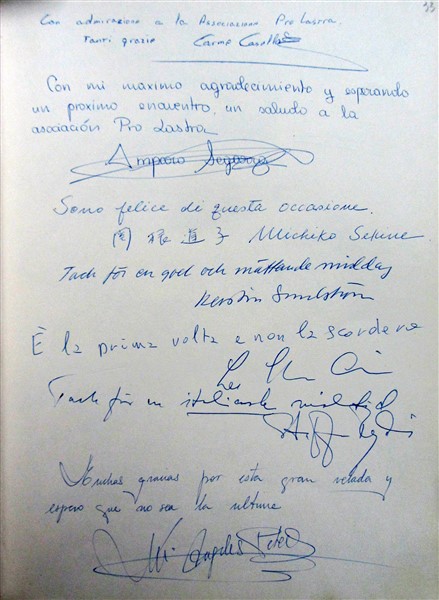 33
Con admirazione a la Associazione Pro Lastra.
Tanti grazie Carme
Con mi maximo agradecimiento y esperando
un proximo encuentro, un saludo a la
asociación Pro Lastra
Amparo
Sono felice di questa occasione.
関根道子 Michiko Sekine
Tack för en god och mättande middag
Kerstin Sundström
È la prima volta e non la scorderò
Tack för en italiensk
Muchas gracias por esta gran velada y
espero que no sea la ultima
Mª Angeles